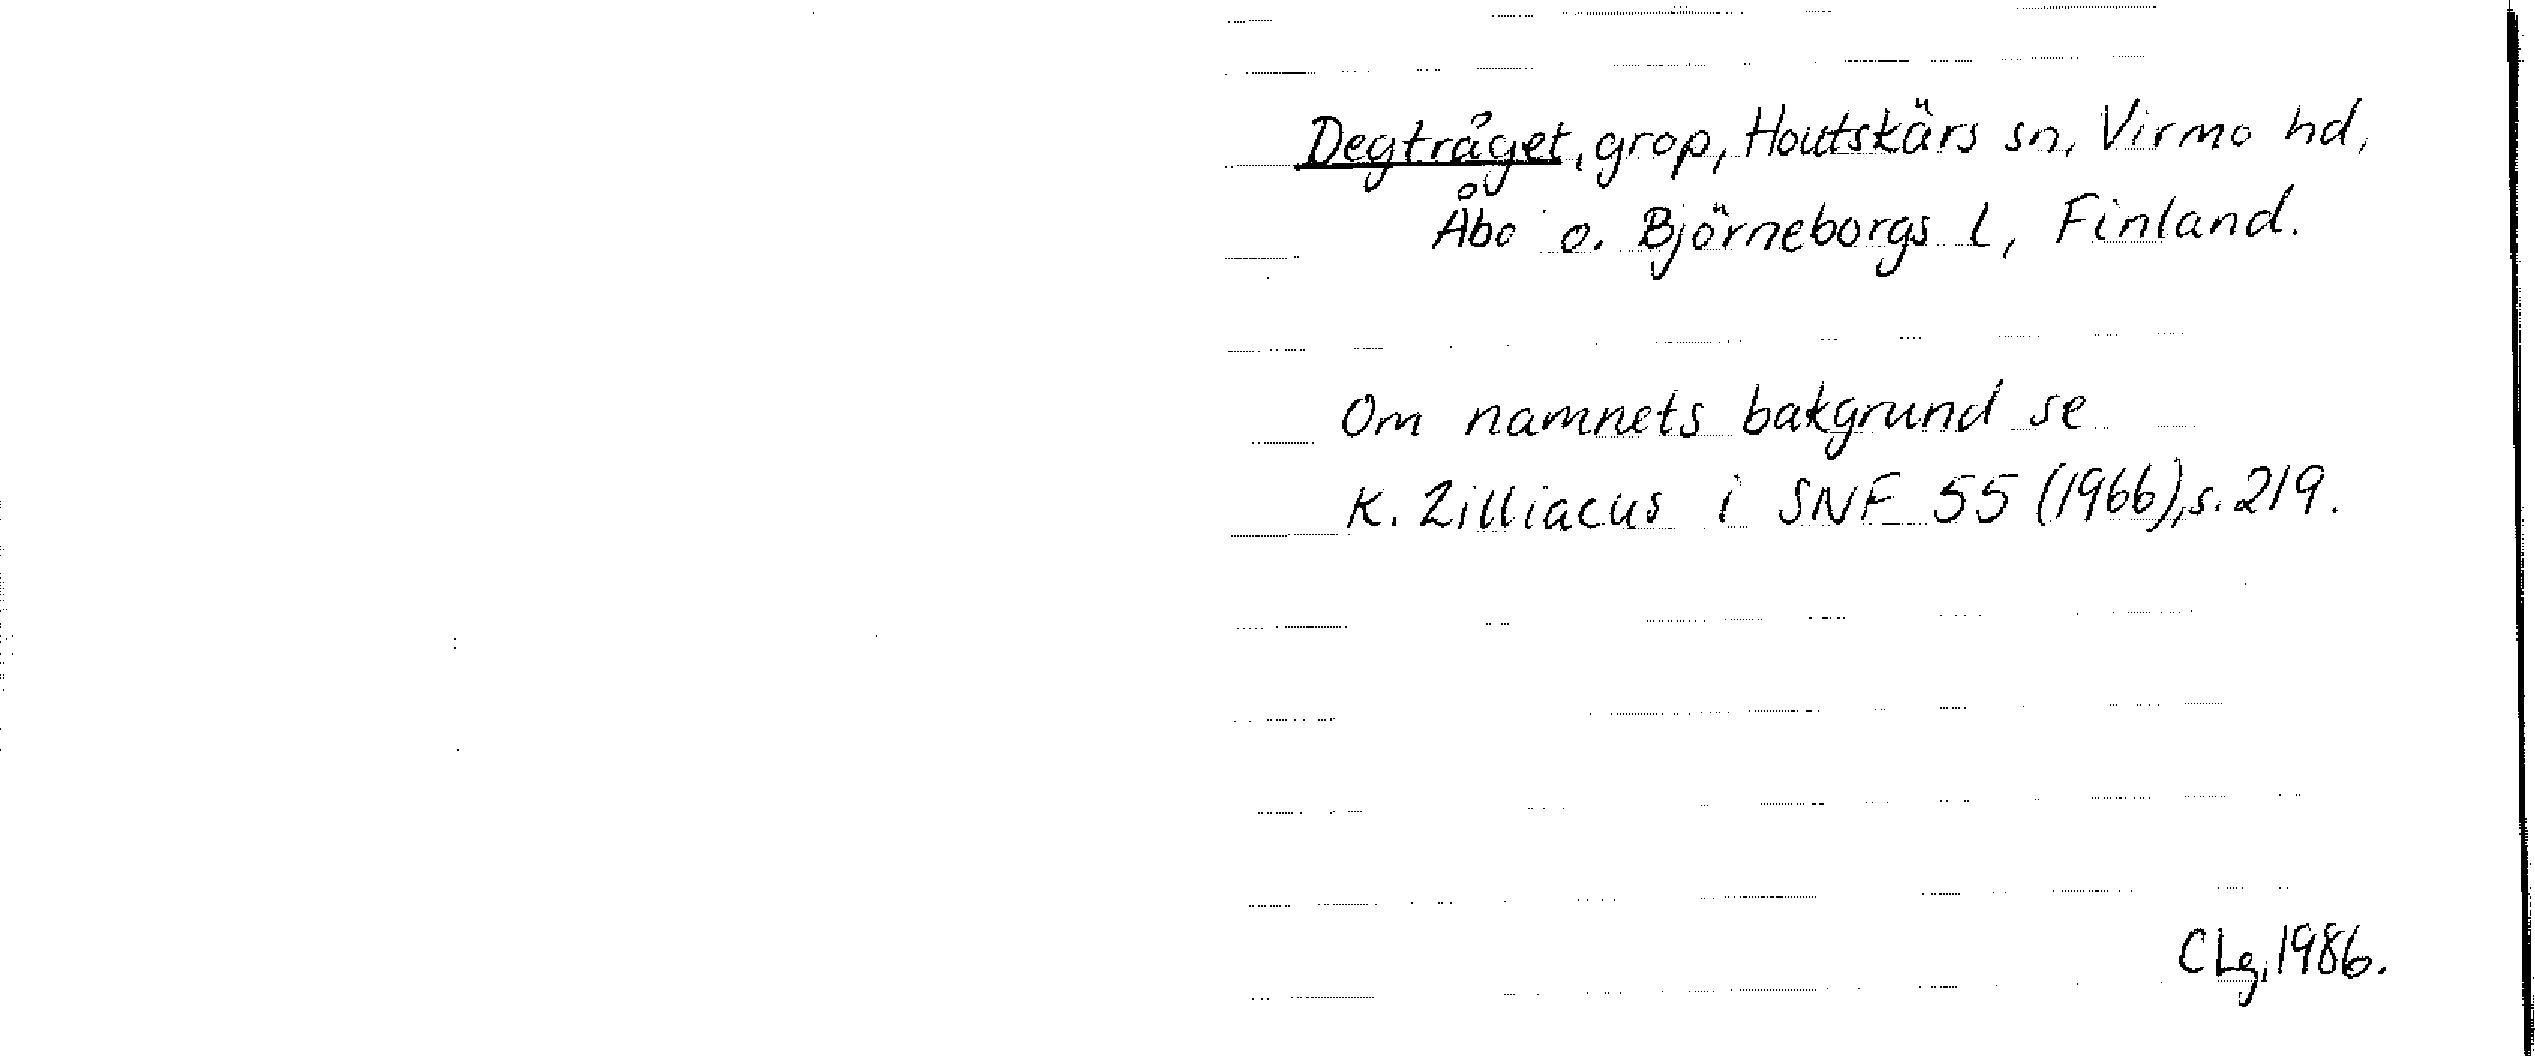 Degtråget, grop, Houtskärs sn, Virmo hd,
Åbo o. Björneborgs l, Finland.
Om namnets bakgrund se
K. Zilliacus i SNF 55 (1966), s. 219.
CLg, 1986.